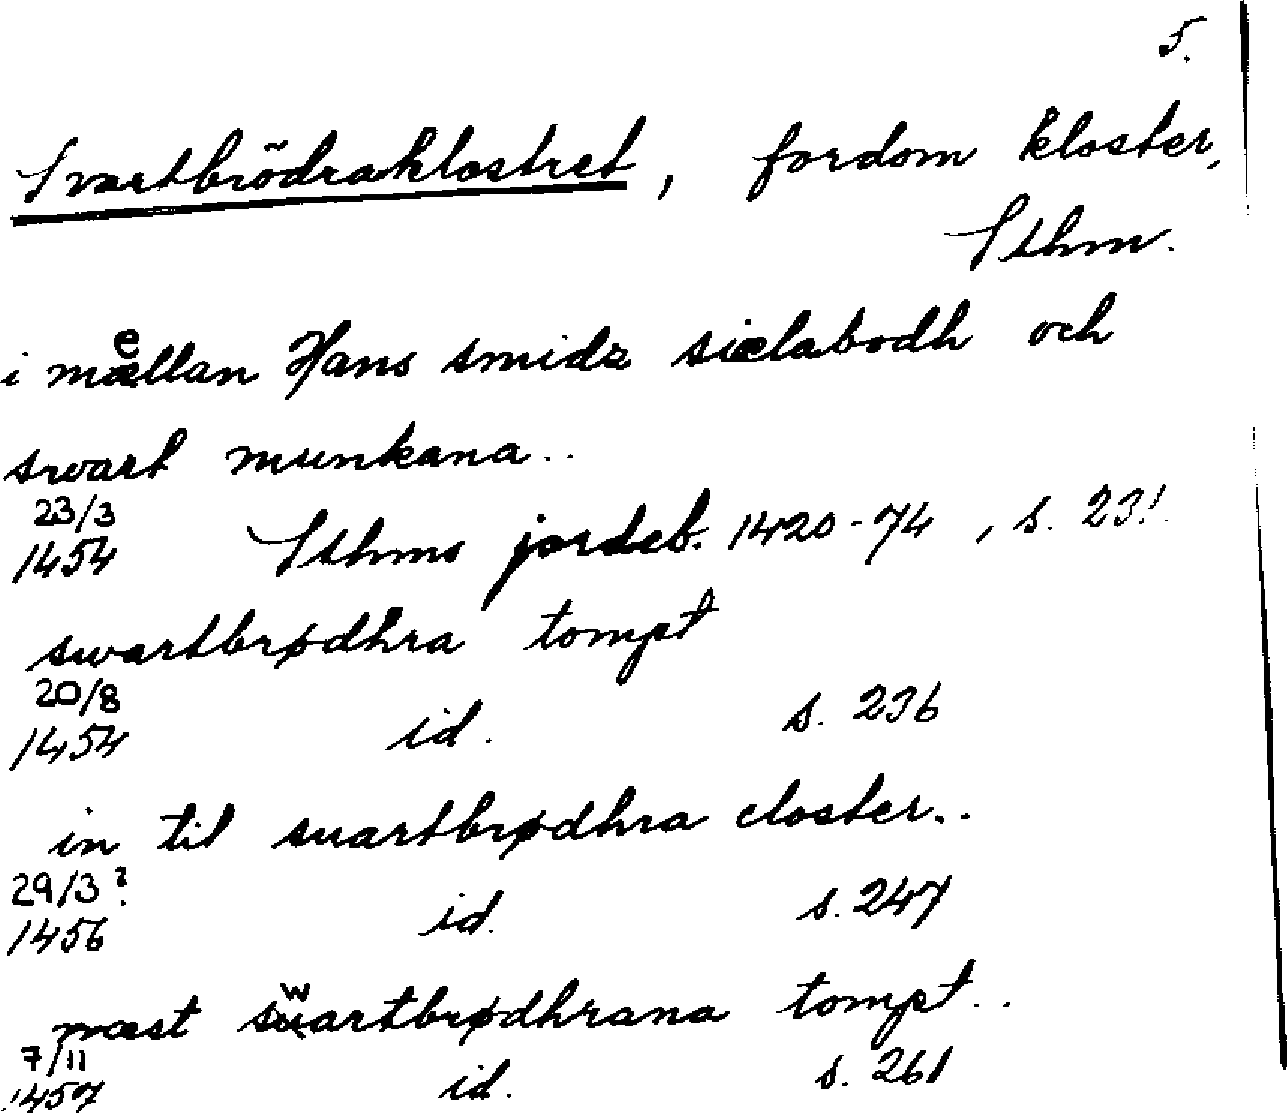 5.
Svartbrödraklostret, fordom kloster,
Sthm.
i mellan Hans smidz siælabodh och
swart munkana..
23/3
1454 Sthms jordeb. 1420-74, s. 231
swartbrødhra tompt
20/8
1454 id. s. 236
in til suartbrødhra closter..
29/3?
1456 id. s. 247
næst swartbrødhrana tompt..
7/11
1457 id. s. 261